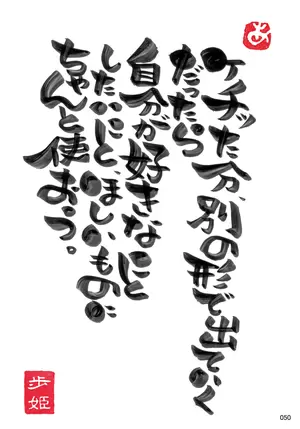 ケチった分、別の形で出ていく
だったら
自分が好きなこと
したいこと、ほしいものに
ちゃんと使おう。
歩姫
050